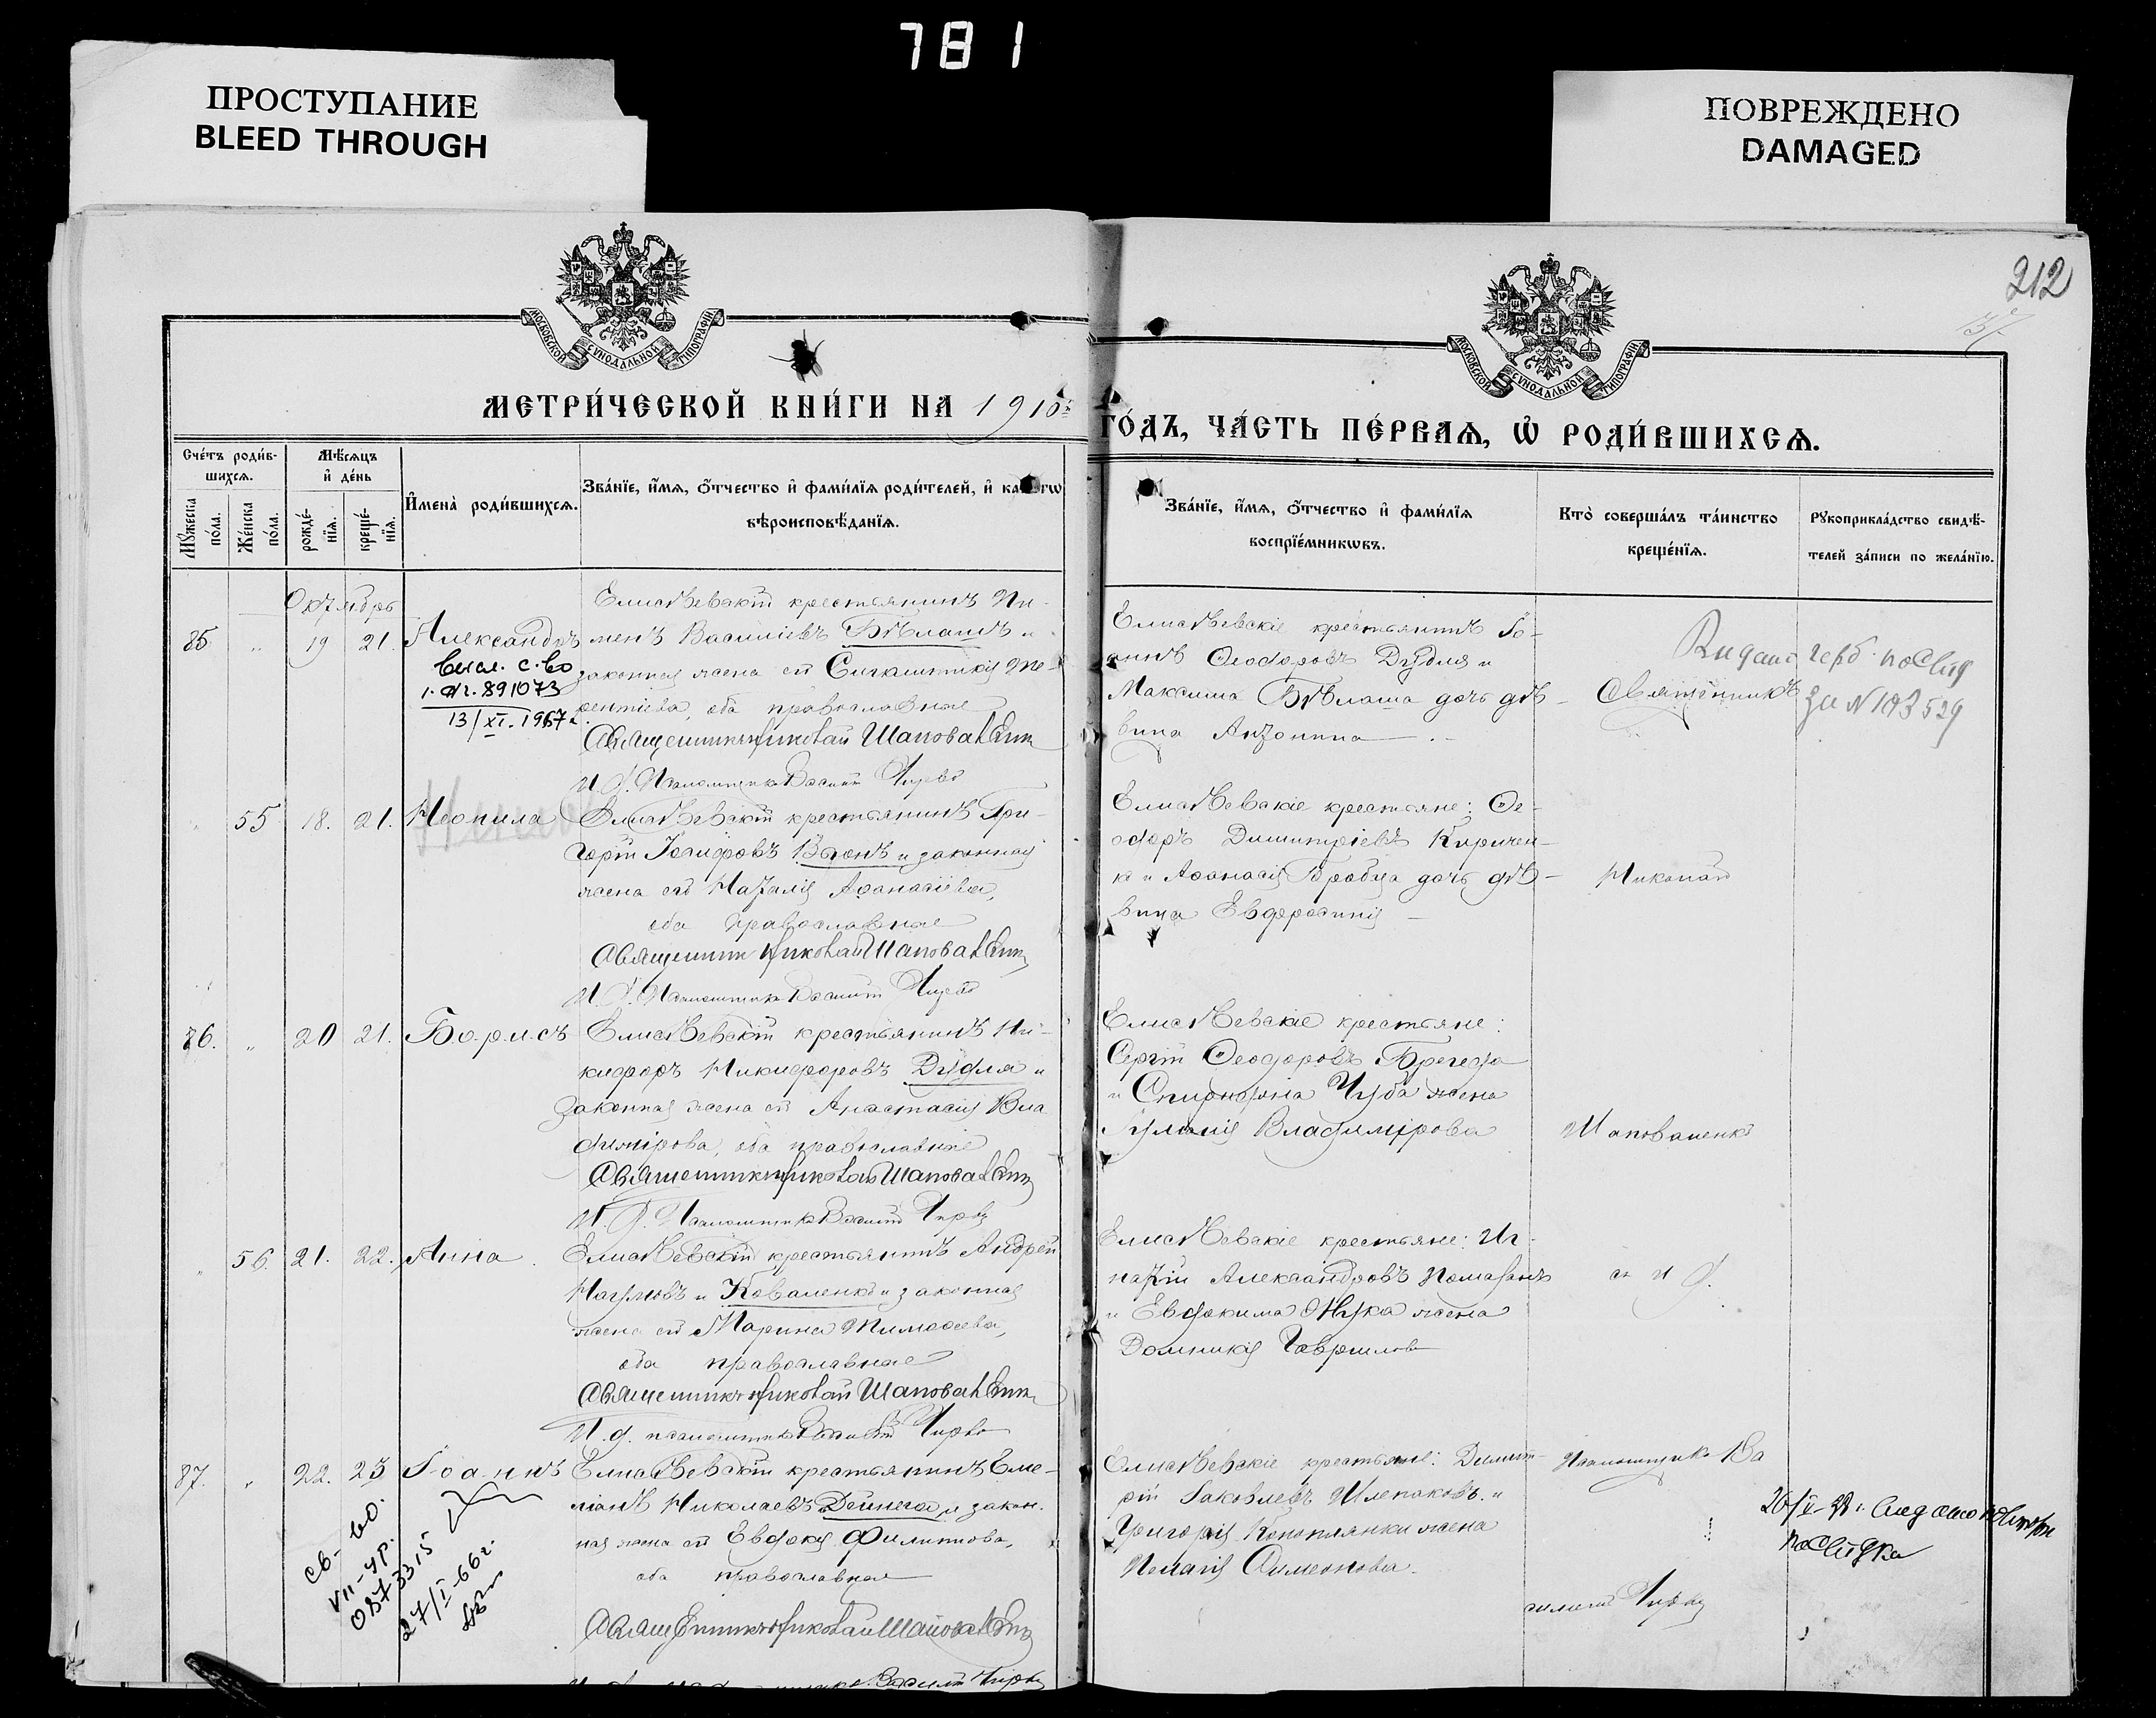 781
ПРОСТУПАНИЕ
BLEED THROUGH
ПОВРЕЖДЕНО
DAMAGED
212
МОСКОВСКОЙ СУНОДАЛЬНОЙ ТИПОГРАФІИ
МОСКОВСКОЙ СУНОДАЛЬНОЙ ТИПОГРАФІИ
МЕТРИ́ЧЕСКОЙ КНИ́ГИ НА 1910
ГО́ДЪ, ЧА́СТЬ ПЕ́РВАѦ, Ѡ҆ РОДИ́ВШИХСѦ.
Сче́тъ роди́в-
шихсѧ.
Мꙋжеска по́ла.
Же́нска по́ла.
Мѣ́сѧцъ
и҆ де́нь
рожде́-
нїѧ.
креще́-
нїѧ.
И҆мена̀ роди́вшихсѧ.
Зва́нїе, и҆́мѧ, ѻ҆́тчество и҆ фами́лїѧ роди́телей, и҆
вѣроисповѣ́данїѧ.
Зва́нїе, и҆́мѧ, ѻ҆́тчество и҆ фами́лїѧ
воспрїе́мникѡвъ.
Кто̀ соверша́лъ та́инство
креще́нїѧ.
Рꙋкоприкла́дство свидѣ́-
телей за́писи по жела́нїю.
Октябрь
85. " 19 21. Александръ
1. 891073
13/XI.1967
Елисѣевскій крестьянинъ Пи-
менъ Василіевъ Бѣлашъ и
законная жена его Синклитикія Те-
рентіева, оба православные
Священникъ Николай Шаповаленко
И. д. Псаломщика Василій Чирва
Елисѣевскіе крестьянинъ Іо-
аннъ Ѳеодоровъ Дудля и
Максима Бѣлаша дочь дѣ-
вица Антонина
Священникъ
за N 103529
" 55 18. 21. Неонила
Елисѣевскій крестьянинъ Гри-
горій Іосифовъ Вьюнъ и законная
жена его Наталія Аѳанасіева,
оба православные
Священникъ Николай Шаповаленко
И. д. Псаломщика Василій Чирва
Елисѣевскіе крестьяне: Ѳе-
одоръ Димитріевъ Киричен-
ко и Аѳанасія дочь дѣ-
вица Евфросинія
Николай
86. " 20 21. Борисъ
Елисѣевскій крестьянинъ Ни-
кифоръ Никифоровъ Дудля и
законная жена его Анастасія Вла
димірова, оба православные
Священникъ Николай Шаповаленко
И. д. Псаломщика Василій Чирва
Елисѣевскіе крестьяне:
Сергій Ѳеодоровъ Брегеда
и Спиридона Чуба жена
Іуліанія Владимірова
Шаповаленко
" 56. 21. 22. Анна
Елисѣевскій крестьянинъ Андрей
Наумовъ Коваленко и законная
жена его Марина Тимоѳеева,
оба православные
Священникъ Николай Шаповаленко
И. д. псаломщика Василій Чирва
Елисѣевскіе крестьяне: Иг-
натій Александровъ Помазанъ
и Евдокима Жука жена
Домникія Гаврилова
съ и д.
87. " 22. 23 Іоаннъ
св-во.
VII-УР.
0873315
27/I-66г.
Елисѣевскій крестьянинъ Еме-
ліанъ Николаевъ Дейнега и закон-
ная жена его Евдокія Филиппова,
оба православные
Священникъ Николай Шаповаленко
Василій Чирва
Елисѣевскіе крестьяне: Димит-
рій Іаковлевъ Шлепаковъ и
Григорія Коноплянки жена
Пелагія Симеонова.
Псаломщика Ва
силій Чирва